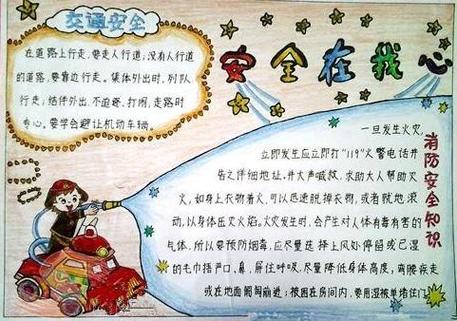 交通安全
在道路上行走,要走人行道;没有人行道
的道路,要靠边行走。集体外出时,列队
行走;结伴外出,不追逐、打闹,走路时
专心。要学会避让机动车辆。
安全在我心
消防安全知识
一旦发生火灾,
立即发生应立即打"119"火警电话并
告之仔细地址,并大声喊救,求助大人帮助灭
火,如身上衣物着火,可以迅速脱掉衣物,或者就地滚
动,以身体压灭火焰。火灾发生时,会产生对人体有毒有害的
气体,所以要预防烟毒,应尽量选择上风处停留或已湿
的毛巾捂严口、鼻,屏住呼吸,尽量降低身体高度,弯腰疾走
或在地面匍匐前进;被困在房间内,要用湿被单堵住门